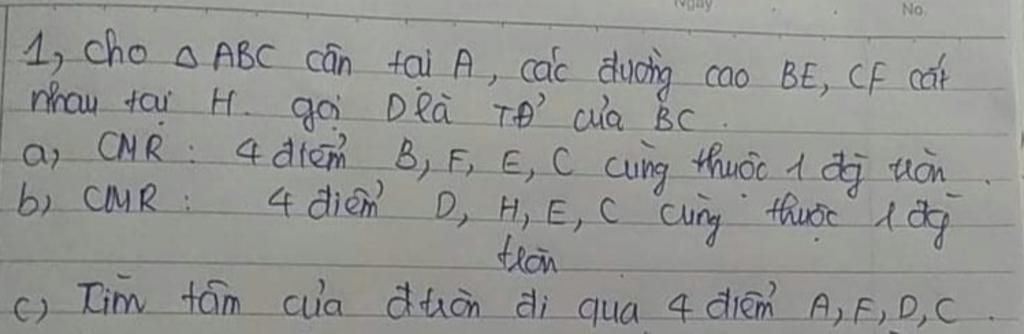 Ngày No.
1, Cho △ ABC cân tại A, các đường cao BE, CF cắt
nhau tại H. gọi D là TĐ' của BC.
a, CMR : 4 điểm B, F, E, C cùng thuộc 1 đg tròn.
b, CMR : 4 điểm D, H, E, C cùng thuộc 1 đg
tròn
c, Tìm tâm của đtròn đi qua 4 điểm A, F, D, C.